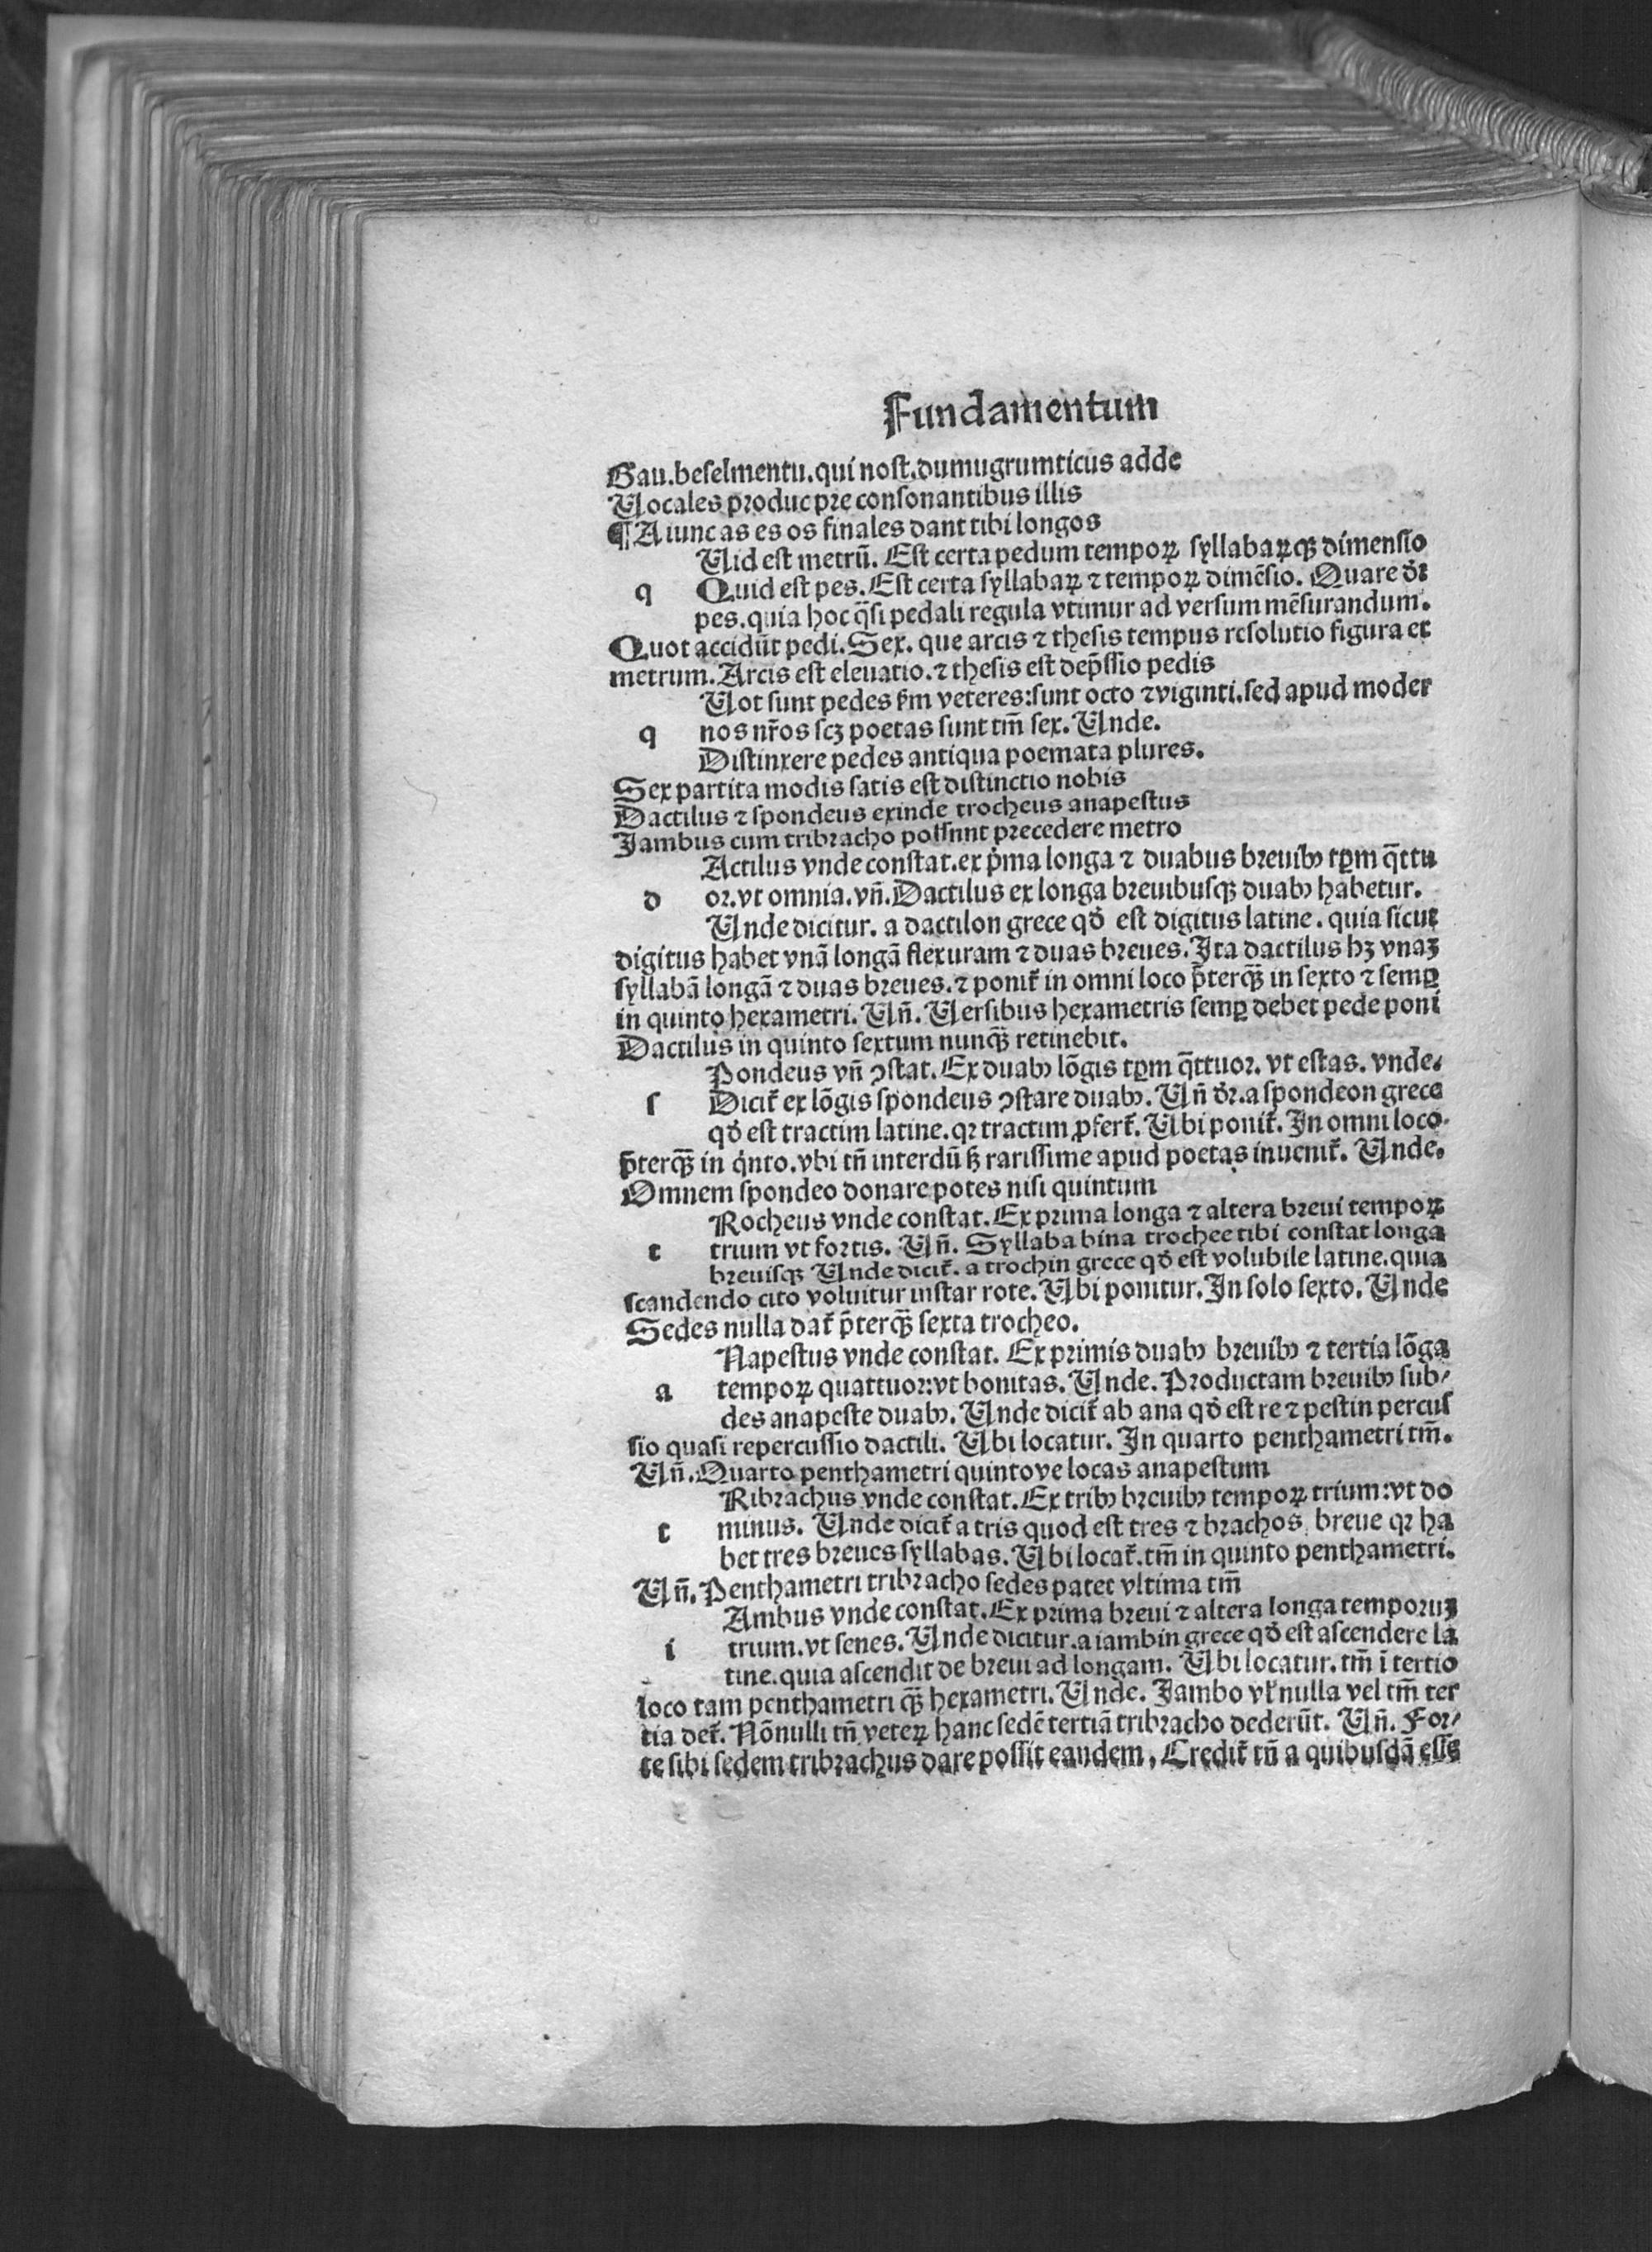 Fundamentum
Gau.beselmentu.qui nost.dumugrumticus adde
Vocales produc pre consonantibus illis
¶ A iunc as es os finales dant tibi longos
Uid est metrū. Est certa pedum tempoꝝ syllabaꝝqꝫ dimensio
q Quid est pes. Est certa syllabaꝝ ⁊ tempoꝝ dimēsio. Quare dr̄
pes. quia hoc q̄si pedali regula vtimur ad versum mēsurandum.
Quot accidūt pedi. Sex. que arcis ⁊ thesis tempus resolutio figura et
metrum. Arcis est eleuatio. ⁊ thesis est dep̄ssio pedis
Uot sunt pedes ẜm veteres: sunt octo ⁊ viginti. sed apud moder
q nos nr̄os scꝫ poetas sunt tm̄ sex. Unde.
Distinxere pedes antiqua poemata plures.
Sex partita modis satis est distinctio nobis
Dactilus ⁊ spondeus exinde trocheus anapestus
Jambus cum tribracho possunt precedere metro
Actilus vnde constat. ex p̄ma longa ⁊ duabus breuibꝰ tꝑm q̄ttu
d or. vt omnia. vn̄. Dactilus ex longa breuibusqꝫ duabꝰ habetur.
Unde dicitur. a dactilon grece qd̄ est digitus latine. quia sicut
digitus habet vnā longā flexuram ⁊ duas breues. Ita dactilus hꝫ vnaꝫ
syllabā longā ⁊ duas breues. ⁊ ponit᷑ in omni loco p̄terqꝫ̄ in sexto ⁊ semꝑ
in quinto hexametri. Un̄. Uersibus hexametris semꝑ debet pede poni
Dactilus in quinto sextum nunqꝫ̄ retinebit.
Pondeus vn̄ ꝯstat. Ex duabꝰ lōgis tꝑm q̄ttuor. vt estas. vnde.
s Dicit᷑ ex lōgis spondeus ꝯstare duabꝰ. Un̄ dr̄. a spondeon grece
qd̄ est tractim latine. qꝛ tractim ꝓfert᷑. Ubi ponit᷑. In omni loco.
p̄terqꝫ̄ in q̇nto. vbi tn̄ interdū ſꝫ rarissime apud poetas inuenit᷑. Unde.
Omnem spondeo donare potes nisi quintum
Rocheus vnde constat. Ex prima longa ⁊ altera breui tempoꝝ
t trium vt fortis. Un̄. Syllaba bina trochee tibi constat longa
breuisqꝫ Unde dicit᷑. a trochin grece qd̄ est volubile latine. quia
scandendo cito voluitur instar rote. Ubi ponitur. In solo sexto. Unde
Sedes nulla dat᷑ p̄terqꝫ̄ sexta trocheo.
Napestus vnde constat. Ex primis duabꝰ breuibꝰ ⁊ tertia lōga
a tempoꝝ quattuor: vt bonitas. Unde. Productam breuibꝰ sub⸗
des anapeste duabꝰ. Unde dicit᷑ ab ana qd̄ est re ⁊ pestin percus
sio quasi repercussio dactili. Ubi locatur. In quarto penthametri tm̄.
Un̄. Quarto penthametri quintove locas anapestum
Ribrachus vnde constat. Ex tribꝰ breuibꝰ tempoꝝ trium: vt do
t minus. Unde dicit᷑ a tris quod est tres ⁊ brachos breue qꝛ ha
bet tres breues syllabas. Ubi locat᷑. tm̄ in quinto penthametri.
Un̄. Penthametri tribracho sedes patet vltima tm̄
Ambus vnde constat. Ex prima breui ⁊ altera longa temporuꝫ
i trium. vt senes. Unde dicitur. a iambin grece qd̄ est ascendere la
tine. quia ascendit de breui ad longam. Ubi locatur. tm̄ ī tertio
loco tam penthametri qꝫ̄ hexametri. Unde. Jambo vl᷑ nulla vel tm̄ ter
tia det᷑. Nōnulli tn̄ veteꝝ hanc sedē tertiā tribracho dederūt. Un̄. For⸗
te sibi sedem tribrachus dare possit eandem, Credit᷑ tn̄ a quibusdā esse